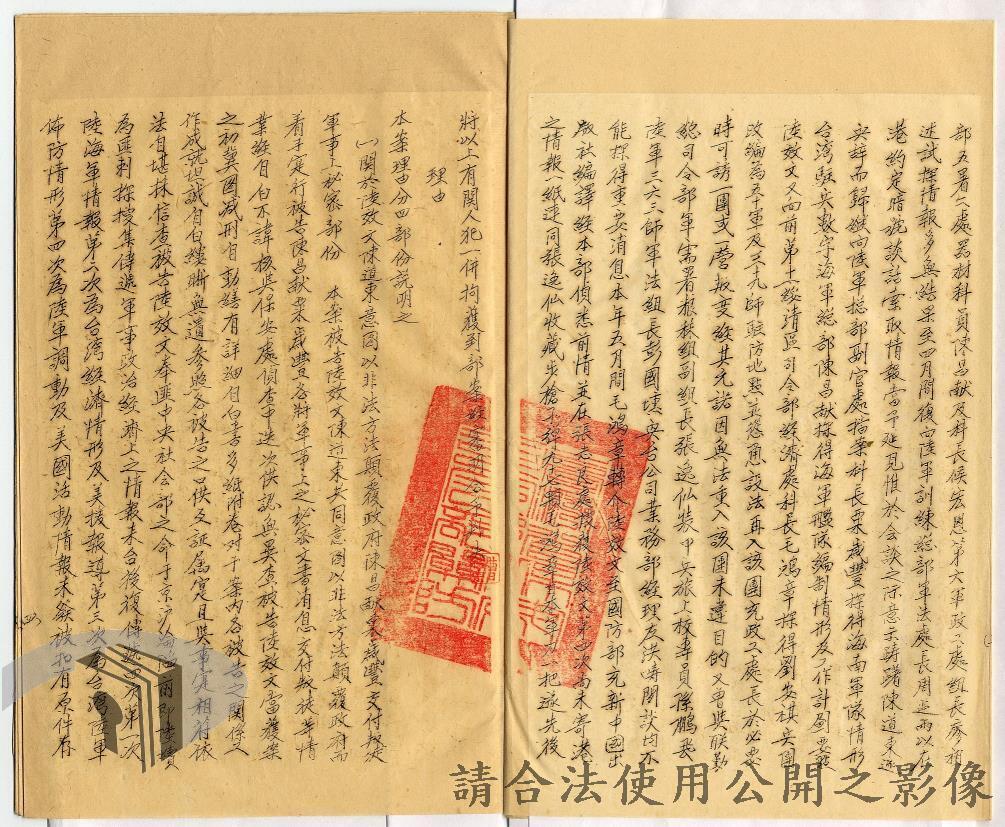 部五署六處器材科員陳昌献及科長侯宏恩第六軍政工處組長廖
述試探情報多無結果至四月間復向陸軍訓練總部軍法處長周 而以在
港約定暗號談話索取情報當予延見惟於会談之際意未 躇陳道東遂
 辞而歸継向陸軍総部副官處档案科長栗歳豐探得海南軍隊情形
台湾駐兵數字海軍總部陳昌献探得海軍艦隊編制情形及工作計劃要
陸效文又向前第十一綏靖區司令部經濟處科長毛鴻章探得劉安祺兵團
改編為五十軍及三九師駐防地點並慫恿設法再入該團充政工處長於必要
時可誘一團或一營叛变經其允諾因無法重入該團未達目的又曾與聯勤
総司令部軍需署粮秣組副組長張逸仙裝甲兵旅上校 員孫鵬飛
陸軍三六三師軍法組長彭國 與台公司業務部經理友洪 聞談均不
能探得重要消息本年五月間毛鴻章轉介陸效文至國防部充新中國出
版社編譯經本部偵悉前情並在張志良處搜獲陸效文第四次尚未寄港
之情報一紙連同張逸仙收藏步槍子弹九 毛鴻章 一把遂先後
將以上有關人犯一併拘獲到部案
理由
本案理由分四部份説明之
㈠關於陸效文陳道東意圖以非法方法顛覆政府陳昌献栗歳豐交付
軍事上秘密部份 本案被告陸效文陳道東共同意圖以非法方法顛覆政府而
着手定行被告陳昌献栗歳豐各將軍事上之秘密文書消息交付叛徒等情
業經自白不諱核與保安處偵查中迭次供認無異查被告陸效文當獲案
之初冀圖减刑自動繕有詳細自白書多紙附卷对于案内各被告之関係又
作成説坦誠自白縷晰無遺參照各被告之口供及証属寔且與事寔相符依
法自堪採信查被告陸效文奉匪中央社会部之命于京沪
為匪刺探搜集傳遞軍事政治經濟上之情報来台後復傳 四次第一次
陸海軍情報第二次為台湾經濟情形及美援報導第三次為台湾陸軍
佈防情形第四次為陸軍調動及美國活動情報未發被扣有原件存
請合法使用公開之影像